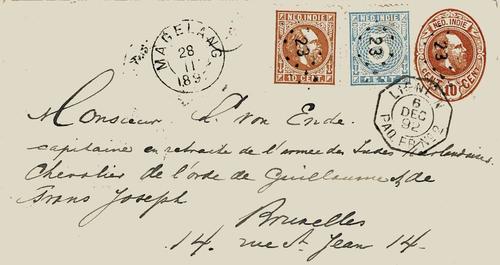 MAGELANG
28
11
189
NED. INDIE
10 CENT
23
NED. INDIE
CENT
23
NED. INDIE
23
10 CENT
LIGNE N
6
DEC
92
PAQ. FR. N°
Monsieur L. von Ende.
capitaine en retraite de l'armee des Indes Néerlandaises.
Chevalier de l'orde de Guillaume & de
Frans Joseph
Bruxelles
14. rue St Jean 14.